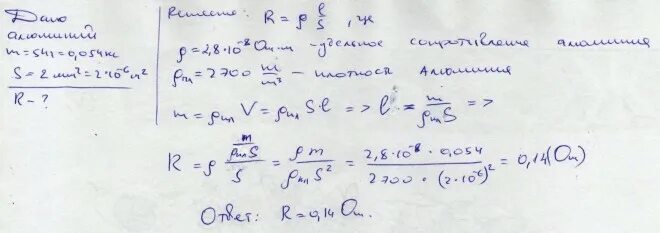 Дано
алюминий
m=54г=0,054кг
S=2мм²=2·10⁻⁶м²
R-?
Решение: R = ρ l/S, где
ρ=2,8·10⁻⁸ Ом·м - удельное сопротивление алюминия
ρпл=2700 – плотность Алюминия
m = ρпл V = ρпл S l => l = m/(ρпл S) =>
R = ρ (m/(ρпл S))/S = ρ m/(ρпл S²) = (2,8·10⁻⁸ · 0,054)/(2700 · (2·10⁻⁶)²) = 0,14(Ом)
Ответ: R=0,14 Ом.